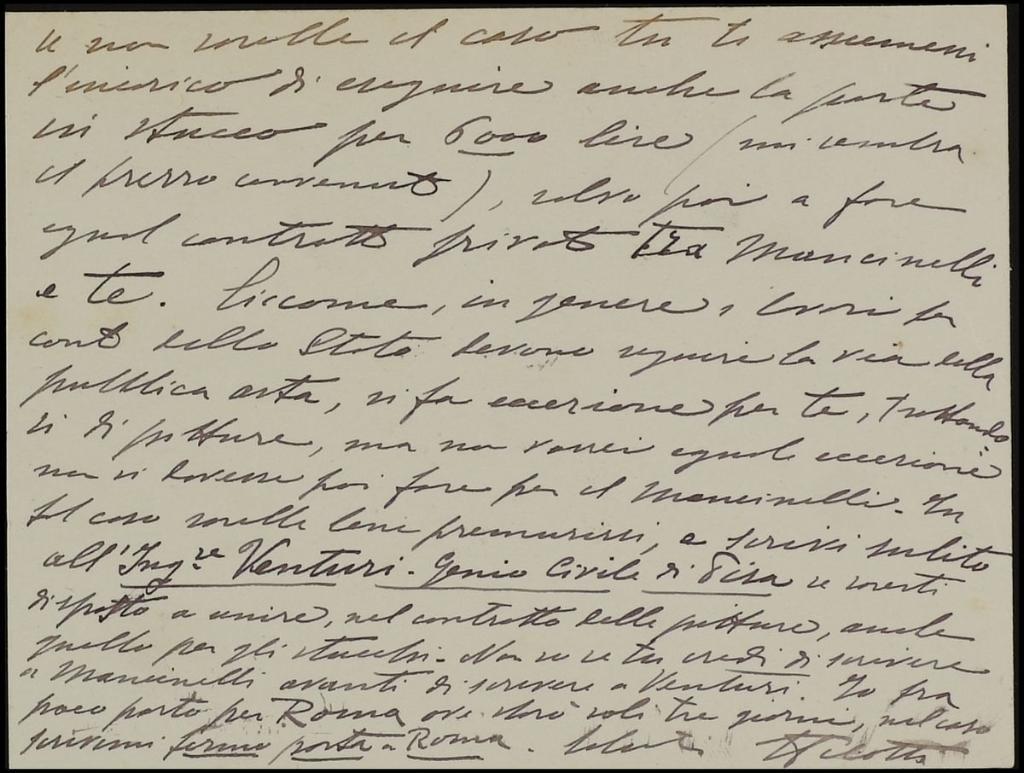 se non sarebbe il caso tu ti assumessi
l'incarico di eseguire anche la parte
in stucco per 6000 lire (mi sembra
il prezzo convenuto), salvo poi a fare
egual contratto privato tra Mancinelli
e te. Siccome, in genere, i lavori per
conto dello Stato devono seguire la via della
pubblica asta, si fa eccezione per te, trattando-
si di pitture, ma non vorrei eguale eccezione
non si dovesse poi fare per il Mancinelli. In
tal caso sarebbe bene premunirsi, e scrivi subito
all'Ing.re Venturi - Genio Civile di Pisa se saresti
disposto a unire, nel contratto delle pitture, anche
quello per gli stucchi. Non so se tu credi di scrivere
a Mancinelli avanti di scrivere a Venturi. Io fra
poco parto per Roma ove starò soli tre giorni, nel caso
scrivimi fermo posta a Roma.